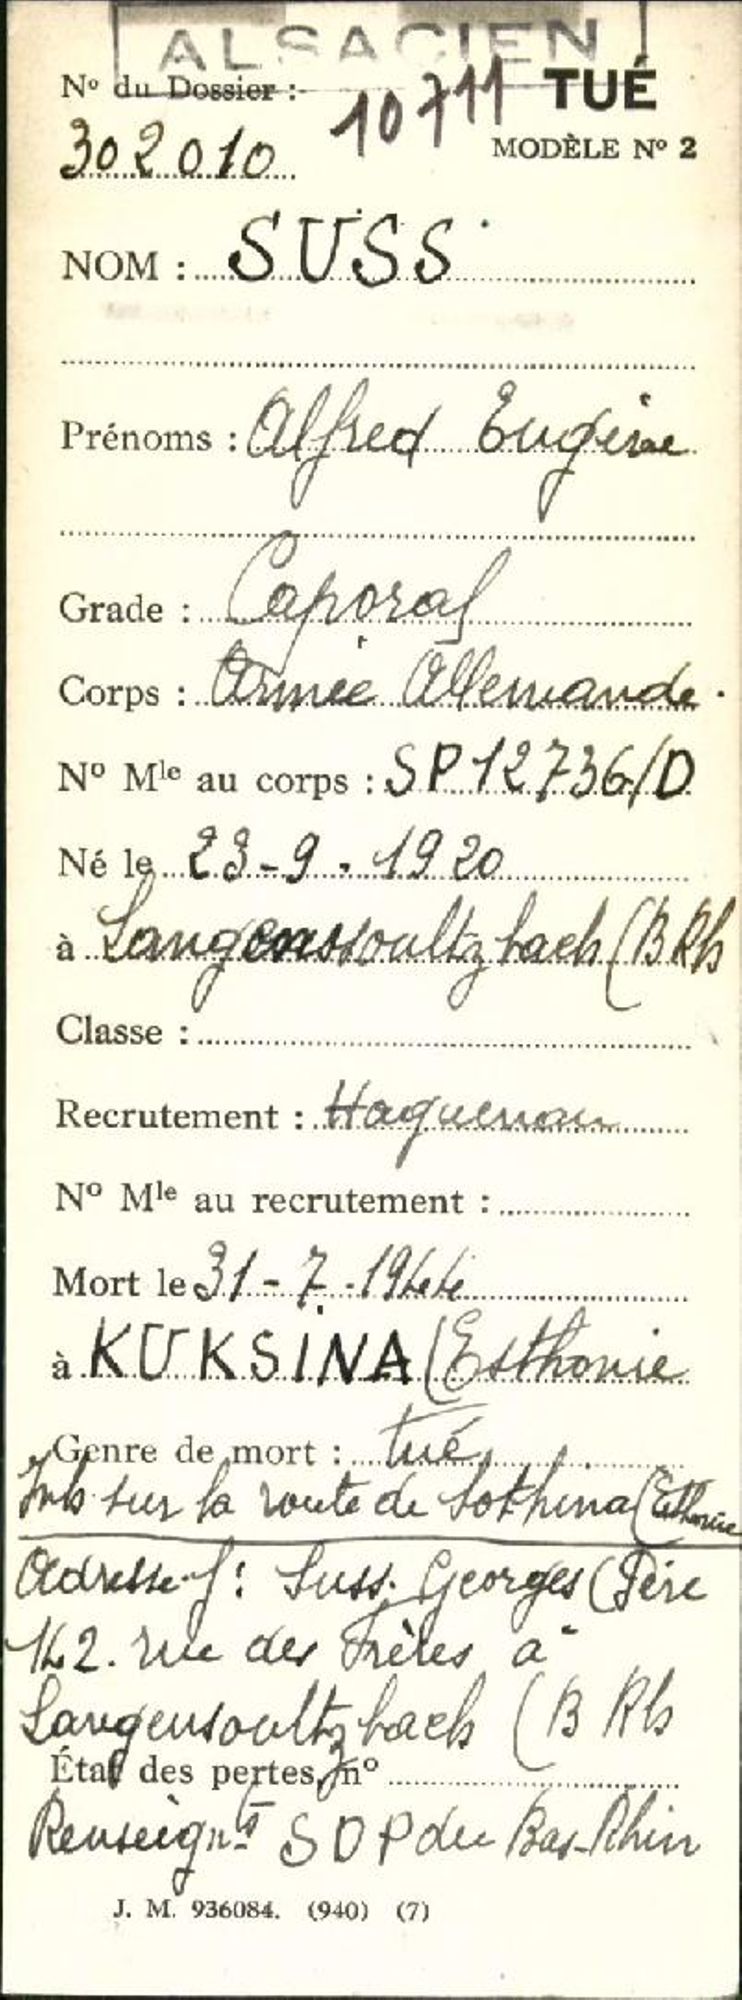 ALSACIEN
N° du Dossier : 10711 TUÉ
302010 MODÈLE N° 2
NOM : SUSS
Prénoms : Alfred Eugène
Grade : Caporal
Corps : Armée Allemande.
N° Mle au corps : SP 12736/D
Né le 23-9-1920
à Langenssoultzbach (B Rh
Classe :
Recrutement : Haguenau
N° Mle au recrutement :
Mort le 31-7-1944
à KUKSINA (Esthonie
Genre de mort : tué
Inh. sur la route de Sothina (Esthonie
Adresse f : Suss. Georges (Père
142. rue des Frères à
Langensoultzbach (B Rh
État des pertes, n°
Renseignts SDP du Bas-Rhin
J. M. 936084. (940) (7)